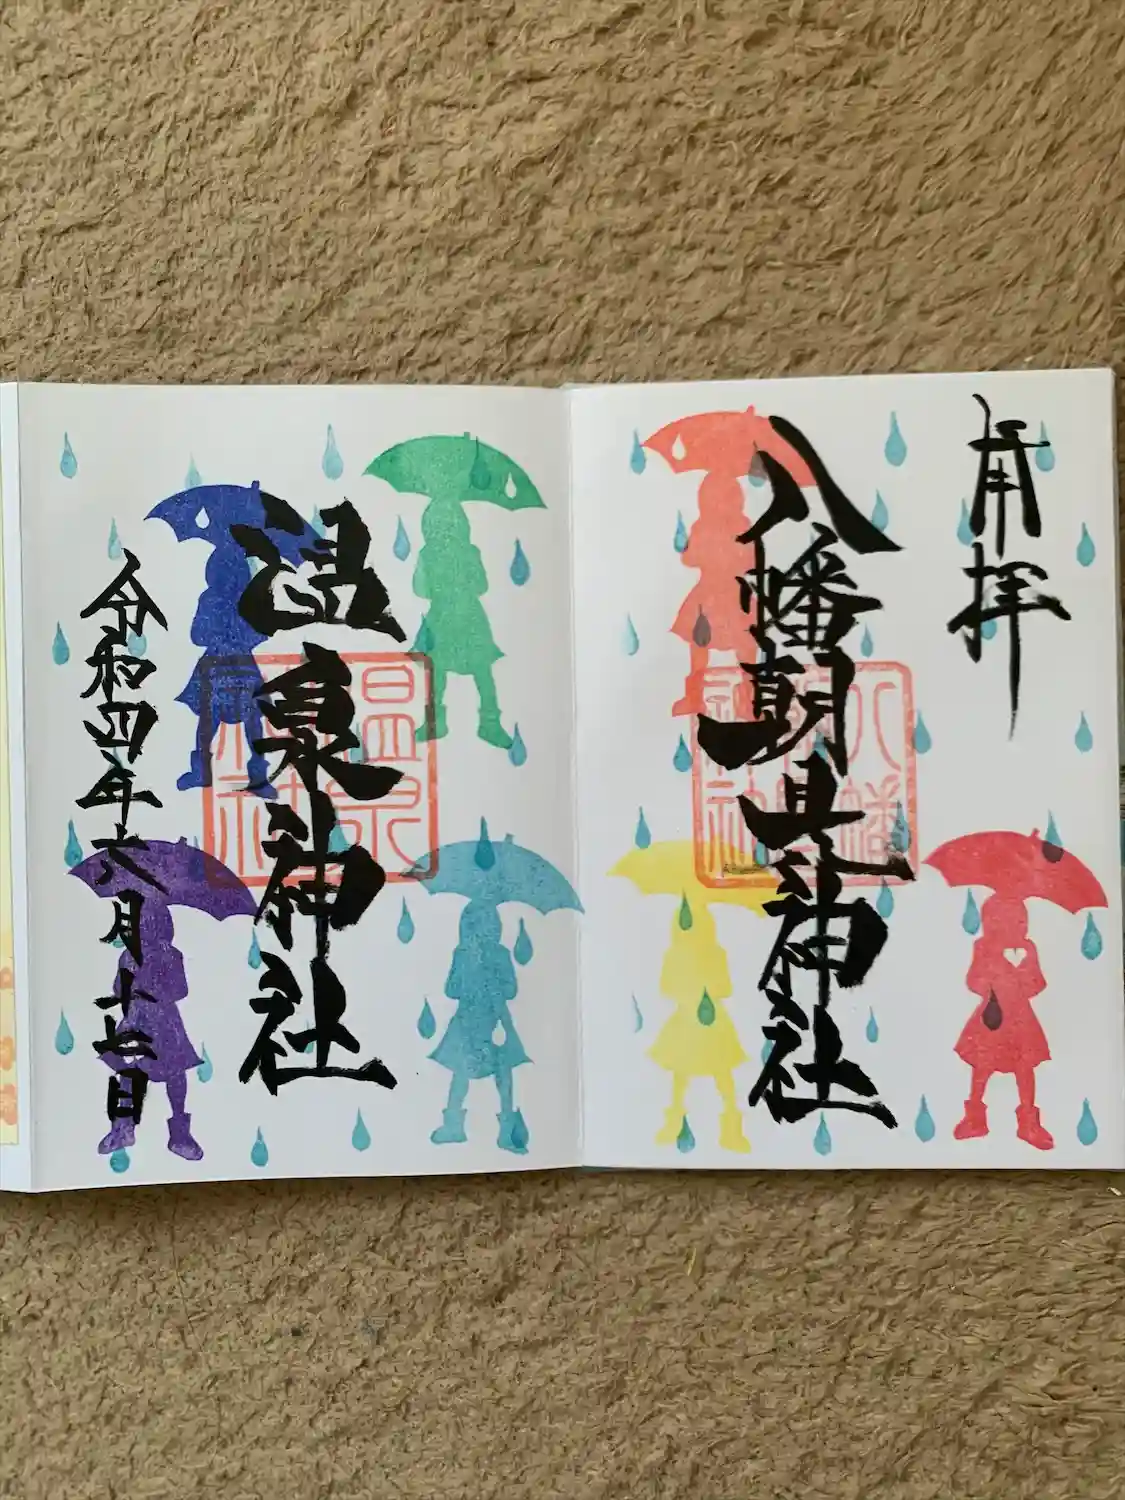 奉拝
八幡朝見神社
八幡
朝見
神社
温泉神社
温泉
神社
令和四年六月十七日